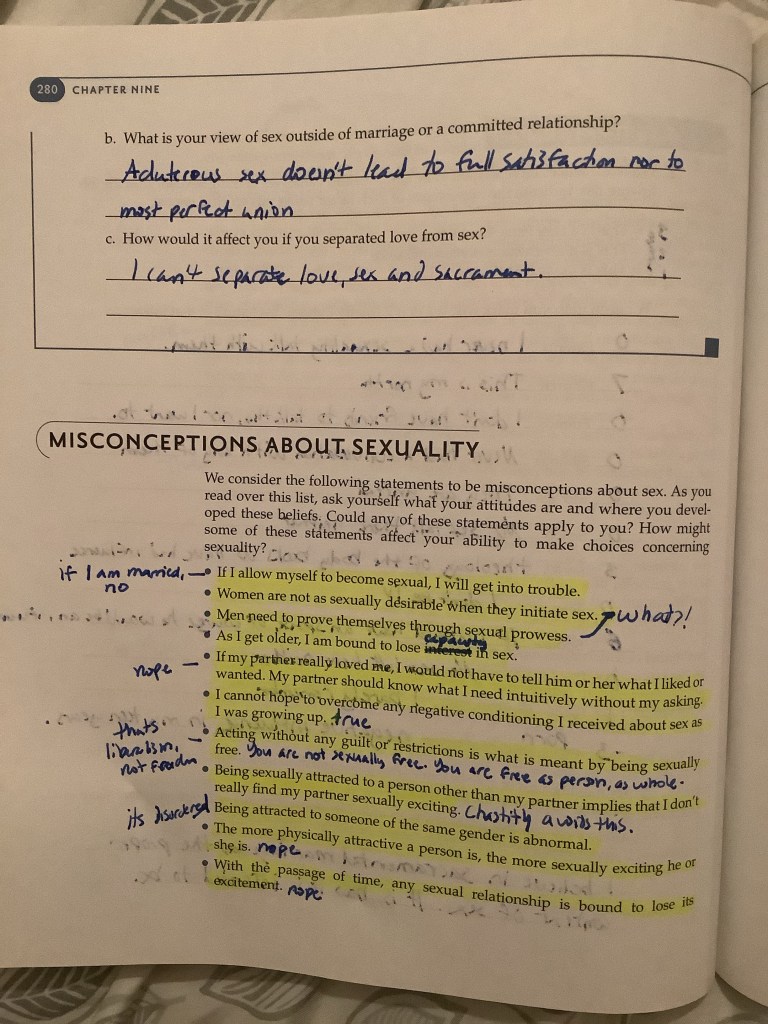 280 CHAPTER NINE
b. What is your view of sex outside of marriage or a committed relationship?
Aduterous sex doesn't lead to full satisfaction nor to
most perfect union
c. How would it affect you if you separated love from sex?
I can't separate love, sex and sacrament.
MISCONCEPTIONS ABOUT SEXUALITY
We consider the following statements to be misconceptions about sex. As you
read over this list, ask yourself what your attitudes are and where you devel-
oped these beliefs. Could any of these statements apply to you? How might
some of these statements affect your ability to make choices concerning
sexuality?
if I am married, no
• If I allow myself to become sexual, I will get into trouble.
• Women are not as sexually desirable when they initiate sex.
what?!
• Men need to prove themselves through sexual prowess.
capacity
• As I get older, I am bound to lose interest in sex.
nope
• If my partner really loved me, I would not have to tell him or her what I liked or
wanted. My partner should know what I need intuitively without my asking.
• I cannot hope to overcome any negative conditioning I received about sex as
I was growing up. true
thats liberalism, not freedom
• Acting without any guilt or restrictions is what is meant by being sexually
free. You are not sexually free. You are free as person, as whole.
• Being sexually attracted to a person other than my partner implies that I don't
really find my partner sexually exciting. Chastity avoids this.
its disordered
• Being attracted to someone of the same gender is abnormal.
• The more physically attractive a person is, the more sexually exciting he or
she is. nope
• With the passage of time, any sexual relationship is bound to lose its
excitement. nope